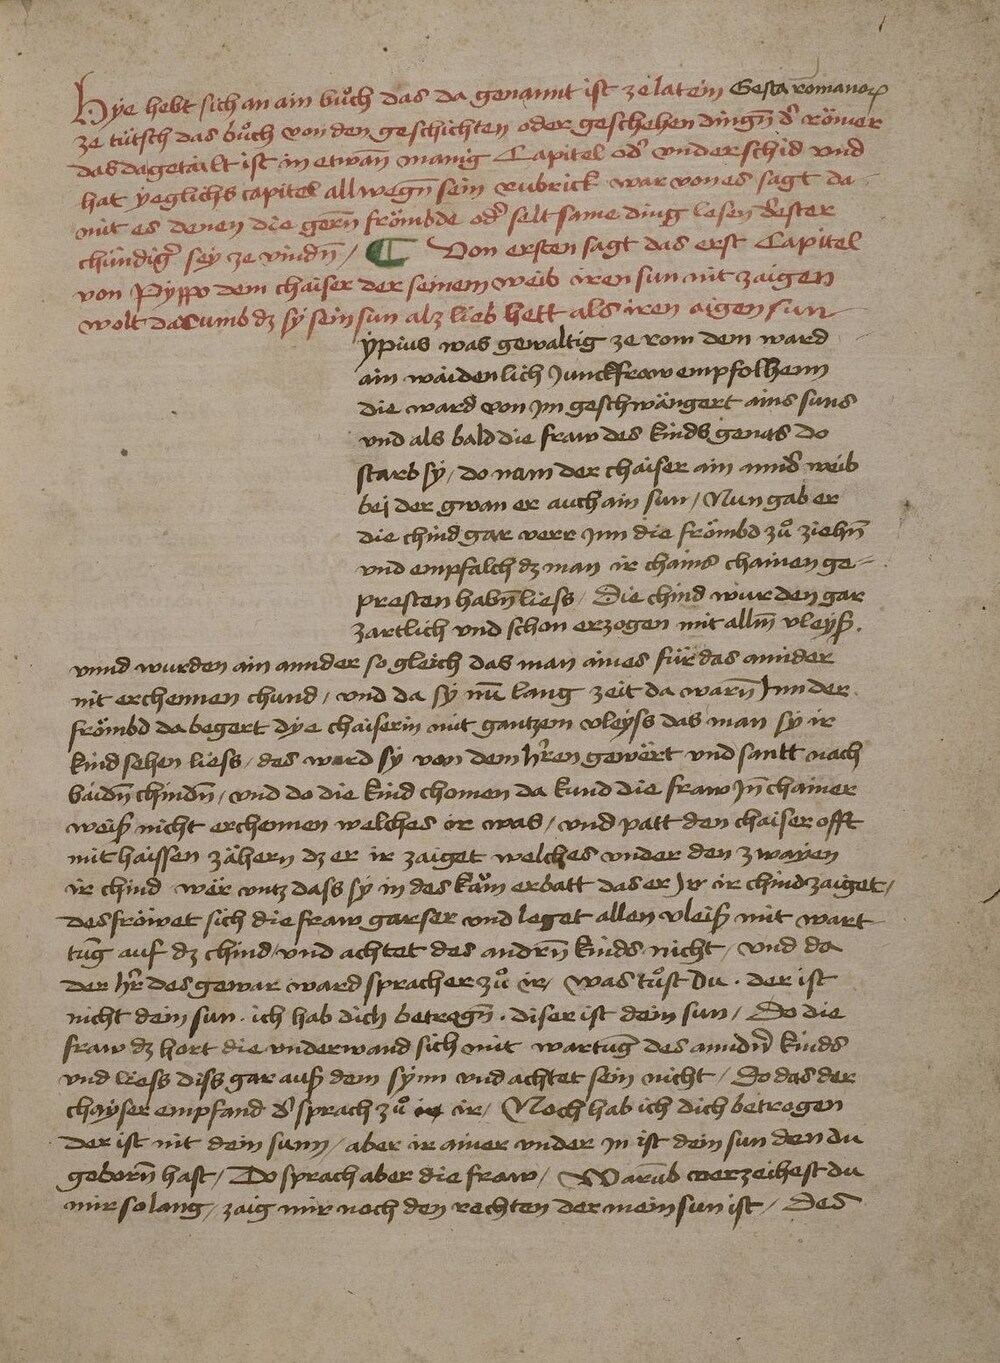 Hye hebt sich an ain buͦch das da genannt ist ze latein Gesta romanorꝝ
ze tütsch das buͦch von den geschichten oder geschehen dingn̄ dˀ römer
das da getailt ist in etwan̄ manig Capitel odˀ vnderschid vnd
hat yeglichs capitel allwegn̄ sein rubrick war von es sagt da
mit es denen die gern̄ frömbde odˀ seltsame ding lesen dester
chündigˀ sey ze vindn̄ / ¶ Von ersten sagt das erst Capitel
von Pyppo dem chaiser der seinem weib iren sun nit zaigen
wolt dar umb dz sy sein sun alz lieb hett als iren aigen sun
ypius was gewaltig ze rom dem ward
ain waidenlich Junckfraw empfolhenn
die ward von Jm geschwängert ains suns
vnd als bald die fraw des kinds genas do
starb sy / do nam der chaiser ain anndˀ weib
bei der gwan er auch ain sun / Nun gab er
die chind gar verr Jnn die frömbd zuͦ ziehn̄
vnd empfalch dz man ir chains chainen ge-
presten habn̄ liess / Die chind wurden gar
zartlich vnd schon erzogen mit allm̄ vleyß .
vnnd wurden ain annder so gleich das man aines für das annder
nit erchennen chund / vnd da sy nū lang zeit da warn̄ Jnn der
frömbd da begert dye chaiserin mit gantzem vleyss das man sy ir
kind sehen liess / des ward sy von dem hr̄en gewërt vnd santt nach
baidn̄ chindn̄ / vnd do die kind chomen da kund die fraw Jn̄ chainer
weiß nicht erchennen welches ir was / vnd patt den chaiser offt
mit haissen zähern dz er ir zaiget welches vnder den zwayen
ir chind wër vntz dass sy in des kam̄ erbatt das er Jr ir chind zaiget /
des fröwet sich die fraw gar ser vnd leget allen vleiß mit wart
tūg auf dz chind / vnd achtet des andrn̄ kinds nicht / vnd da
der hr̄ des gewar ward sprach er zuͦ ir / was tuͦst Du . der ist
nicht dein sun . ich hab dich betrogn̄ . diser ist dein sun / Do die
fraw dz hort die vnderwand sich mit wartūg des anndrˀn kinds
vnd liess diss gar auß dem synn vnd achtet sein nicht / Do das der
chayser empfand dˀ sprach zuͦ ir / Noch hab ich dich betrogen
der ist nit dein sunn / aber ir ainer vnder Jn ist dein sun den du
geborn̄ hast / Do sprach aber die fraw / Warūb verzeihest du
mir so lang / zaig mir noch den rechten der mein sun ist / Des